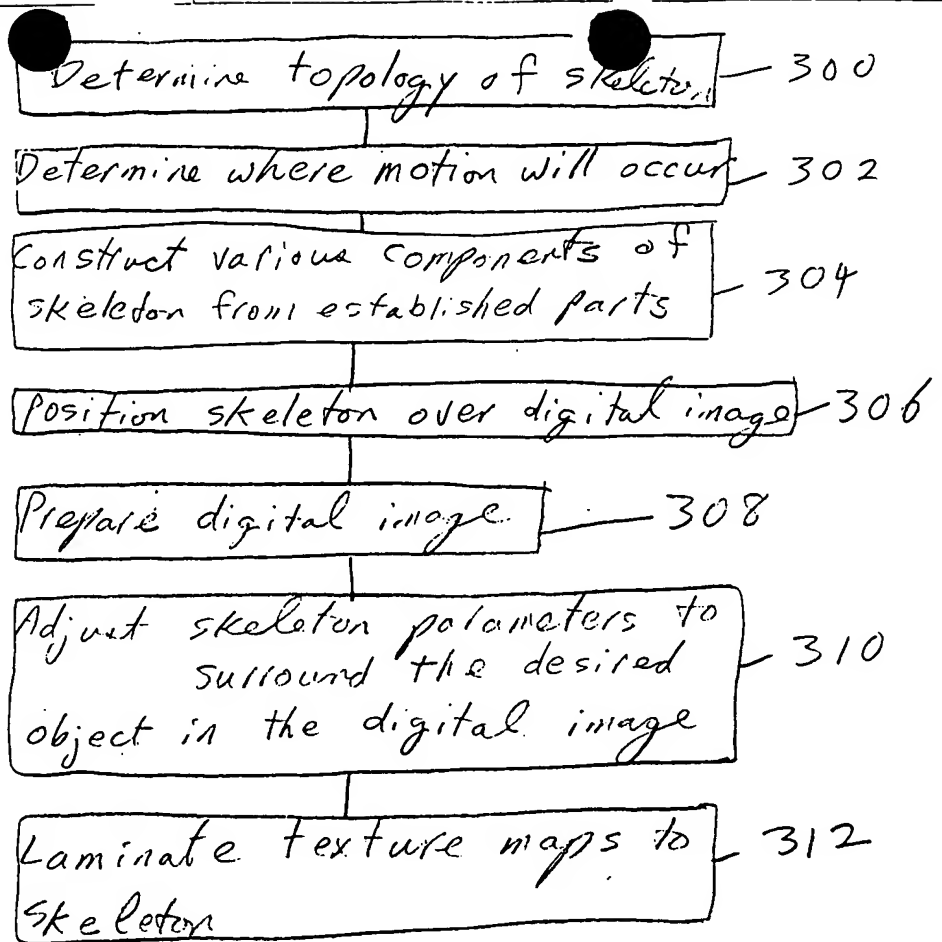 Determine topology of skeleton 300
Determine where motion will occur 302
Construct various components of
skeleton from established parts 304
Position skeleton over digital image 306
Prepare digital image 308
Adjust skeleton parameters to
surround the desired 310
object in the digital image
Laminate texture maps to 312
skeleton